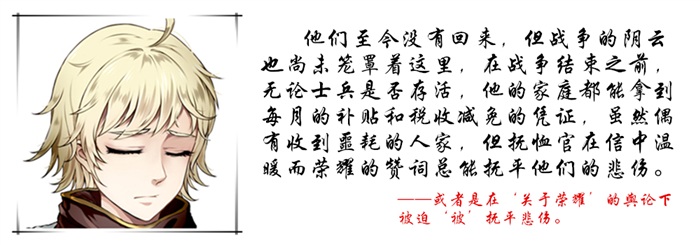 他们至今没有回来，但战争的阴云
也尚未笼罩着这里，在战争结束之前，
无论士兵是否存活，他的家庭都能拿到
每月的补贴和税收减免的凭证，虽然偶
有收到噩耗的人家，但抚恤官在信中温
暖而荣耀的赞词总能抚平他们的悲伤。
——或者是在‘关于荣耀’的舆论下
被迫‘被’抚平悲伤。